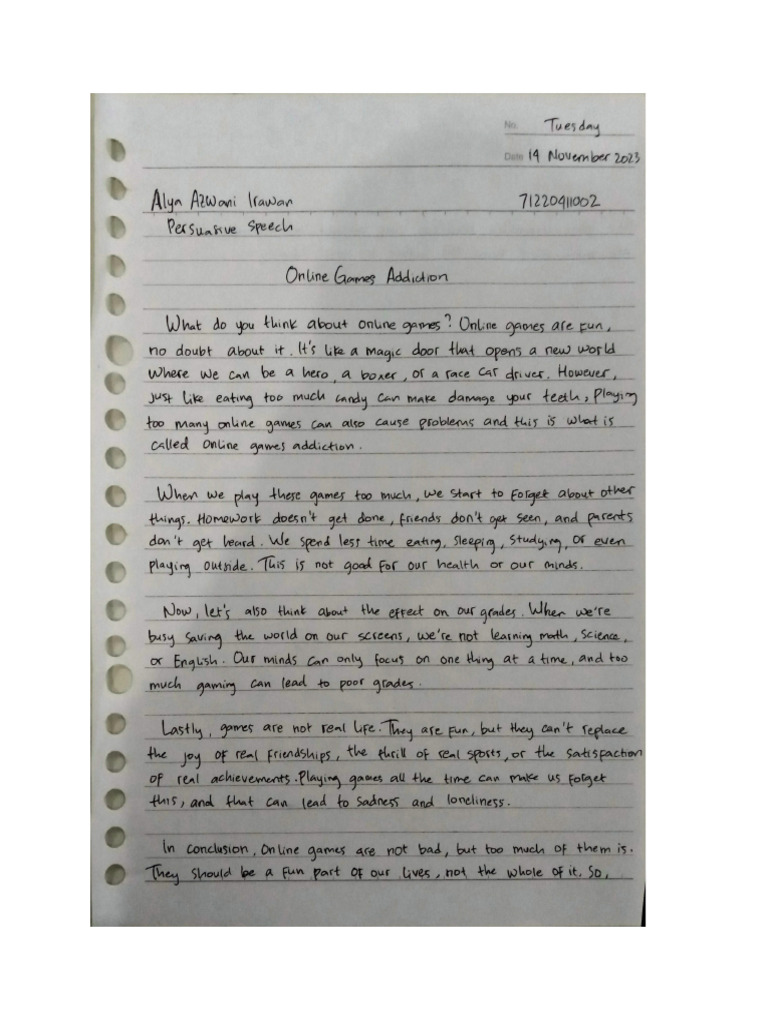 No. Tuesday
Date 14 November 2023
Alya Azwani Irawan 71220411002
Persuasive Speech
Online Games Addiction
What do you think about online games? Online games are fun,
no doubt about it. It's like a magic door that opens a new world
where we can be a hero, a boxer, or a race car driver. However,
just like eating too much candy can make damage your teeth, playing
too many online games can also cause problems and this is what is
called online games addiction.
When we play these games too much, we start to forget about other
things. Homework doesn't get done, friends don't get seen, and parents
don't get heard. We spend less time eating, sleeping, studying, or even
playing outside. This is not good for our health or our minds.
Now, let's also think about the effect on our grades. When we're
busy saving the world on our screens, we're not learning math, science,
or English. Our minds can only focus on one thing at a time, and too
much gaming can lead to poor grades.
Lastly, games are not real life. They are fun, but they can't replace
the joy of real friendships, the thrill of real sports, or the satisfaction
of real achievements. Playing games all the time can make us forget
this, and that can lead to sadness and loneliness.
In conclusion, online games are not bad, but too much of them is.
They should be a fun part of our lives, not the whole of it. So,